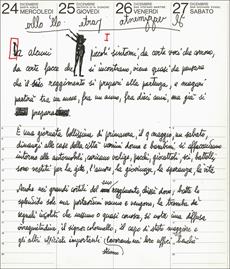 24 DICEMBRE MERCOLEDÌ 25 DICEMBRE GIOVEDÌ 26 DICEMBRE VENERDÌ 27 DICEMBRE SABATO
I
Da alcuni piccoli sintomi, da certe voci che corrono,
da certe facce che si incontrano, viene quasi da pensare
che il reggimento si prepari alla partenza, e magari
partirà tra un mese, fra un anno, fra dieci anni ma già si
prepara
È una giornata bellissima di primavera, il 9 maggio, un sabato,
dinanzi alle case della città uomini donne e bambini si affaccendano
intorno alle automobili, caricano valige, pacchi, giocattoli, sci, battelli
sono vestiti per la gita, l'amore, la giovinezza, la speranza, la vita
Anche nei grandi cortili del reggimento dissi dove, batte lo
splendido sole ma portaordini vanno e vengono, la tromba dà
segnali insoliti che nessuno o quasi conosce, si nota una diffusa
inquietudine, il signor colonnello, il capo di stato maggiore e
gli altri ufficiali importanti lavorando nei loro uffici, hanno